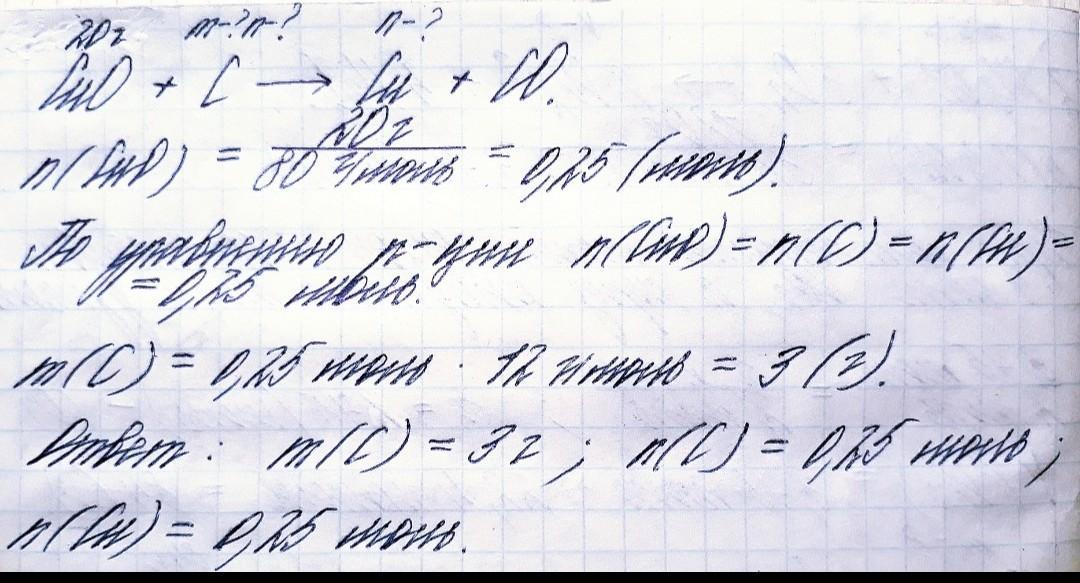 20г m-? n-? n-?
CuO + C → Cu + CO.
n(CuO) = 20г / 80 г/моль = 0,25 (моль).
По уравнению р-ции n(CuO) = n(C) = n(Cu) =
= 0,25 моль.
m(C) = 0,25 моль · 12 г/моль = 3 (г).
Ответ: m(C) = 3г ; n(C) = 0,25 моль ;
n(Cu) = 0,25 моль.